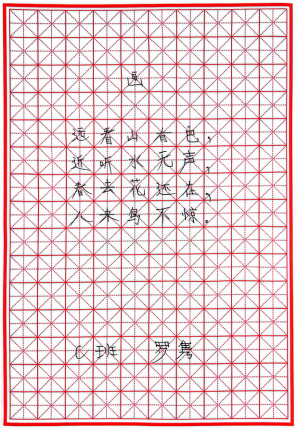 画
远看山有色，
近听水无声，
春去花还在，
人来鸟不惊。
C班 罗隽